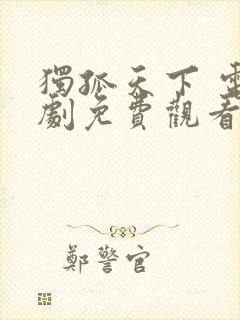 獨孤天下 電
劇免費觀看
鄭警官